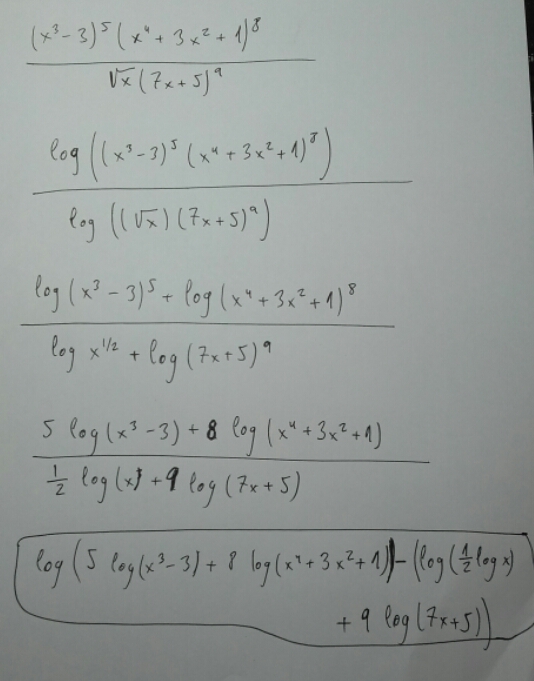 (x³ - 3)⁵ (x⁴ + 3x² + 1)⁸
√x (7x + 5)⁹
log ((x³ - 3)⁵ (x⁴ + 3x² + 1)⁸)
log ((√x) (7x + 5)⁹)
log (x³ - 3)⁵ + log (x⁴ + 3x² + 1)⁸
log x^1/2 + log (7x + 5)⁹
5 log (x³ - 3) + 8 log (x⁴ + 3x² + 1)
1/2 log (x) + 9 log (7x + 5)
log (5 log (x³ - 3) + 8 log (x⁴ + 3x² + 1)) - (log (1/2 log x)
+ 9 log (7x + 5))